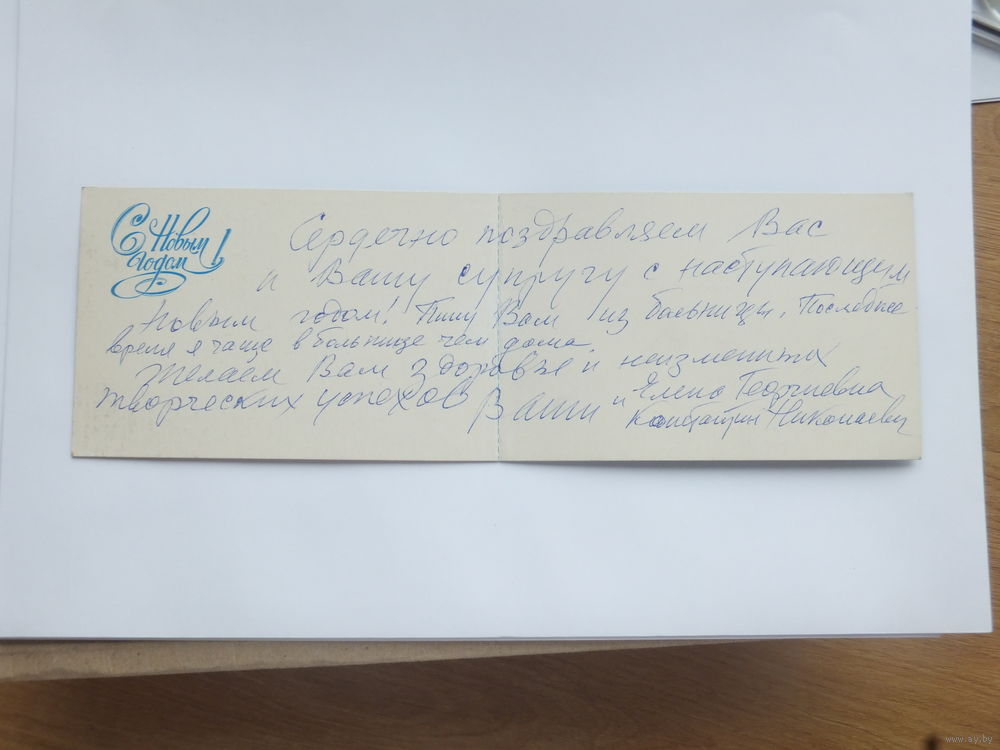 С Новым
годом!
Сердечно поздравляем Вас
и Вашу супругу с наступающим
Новым годом! Пишу Вам из больницы. Последнее
время я чаще в больнице чем дома.
Желаем Вам здоровья и неизменных
творческих успехов Ваши Елена Георгиевна
и Константин Николаевич
www.ay.by